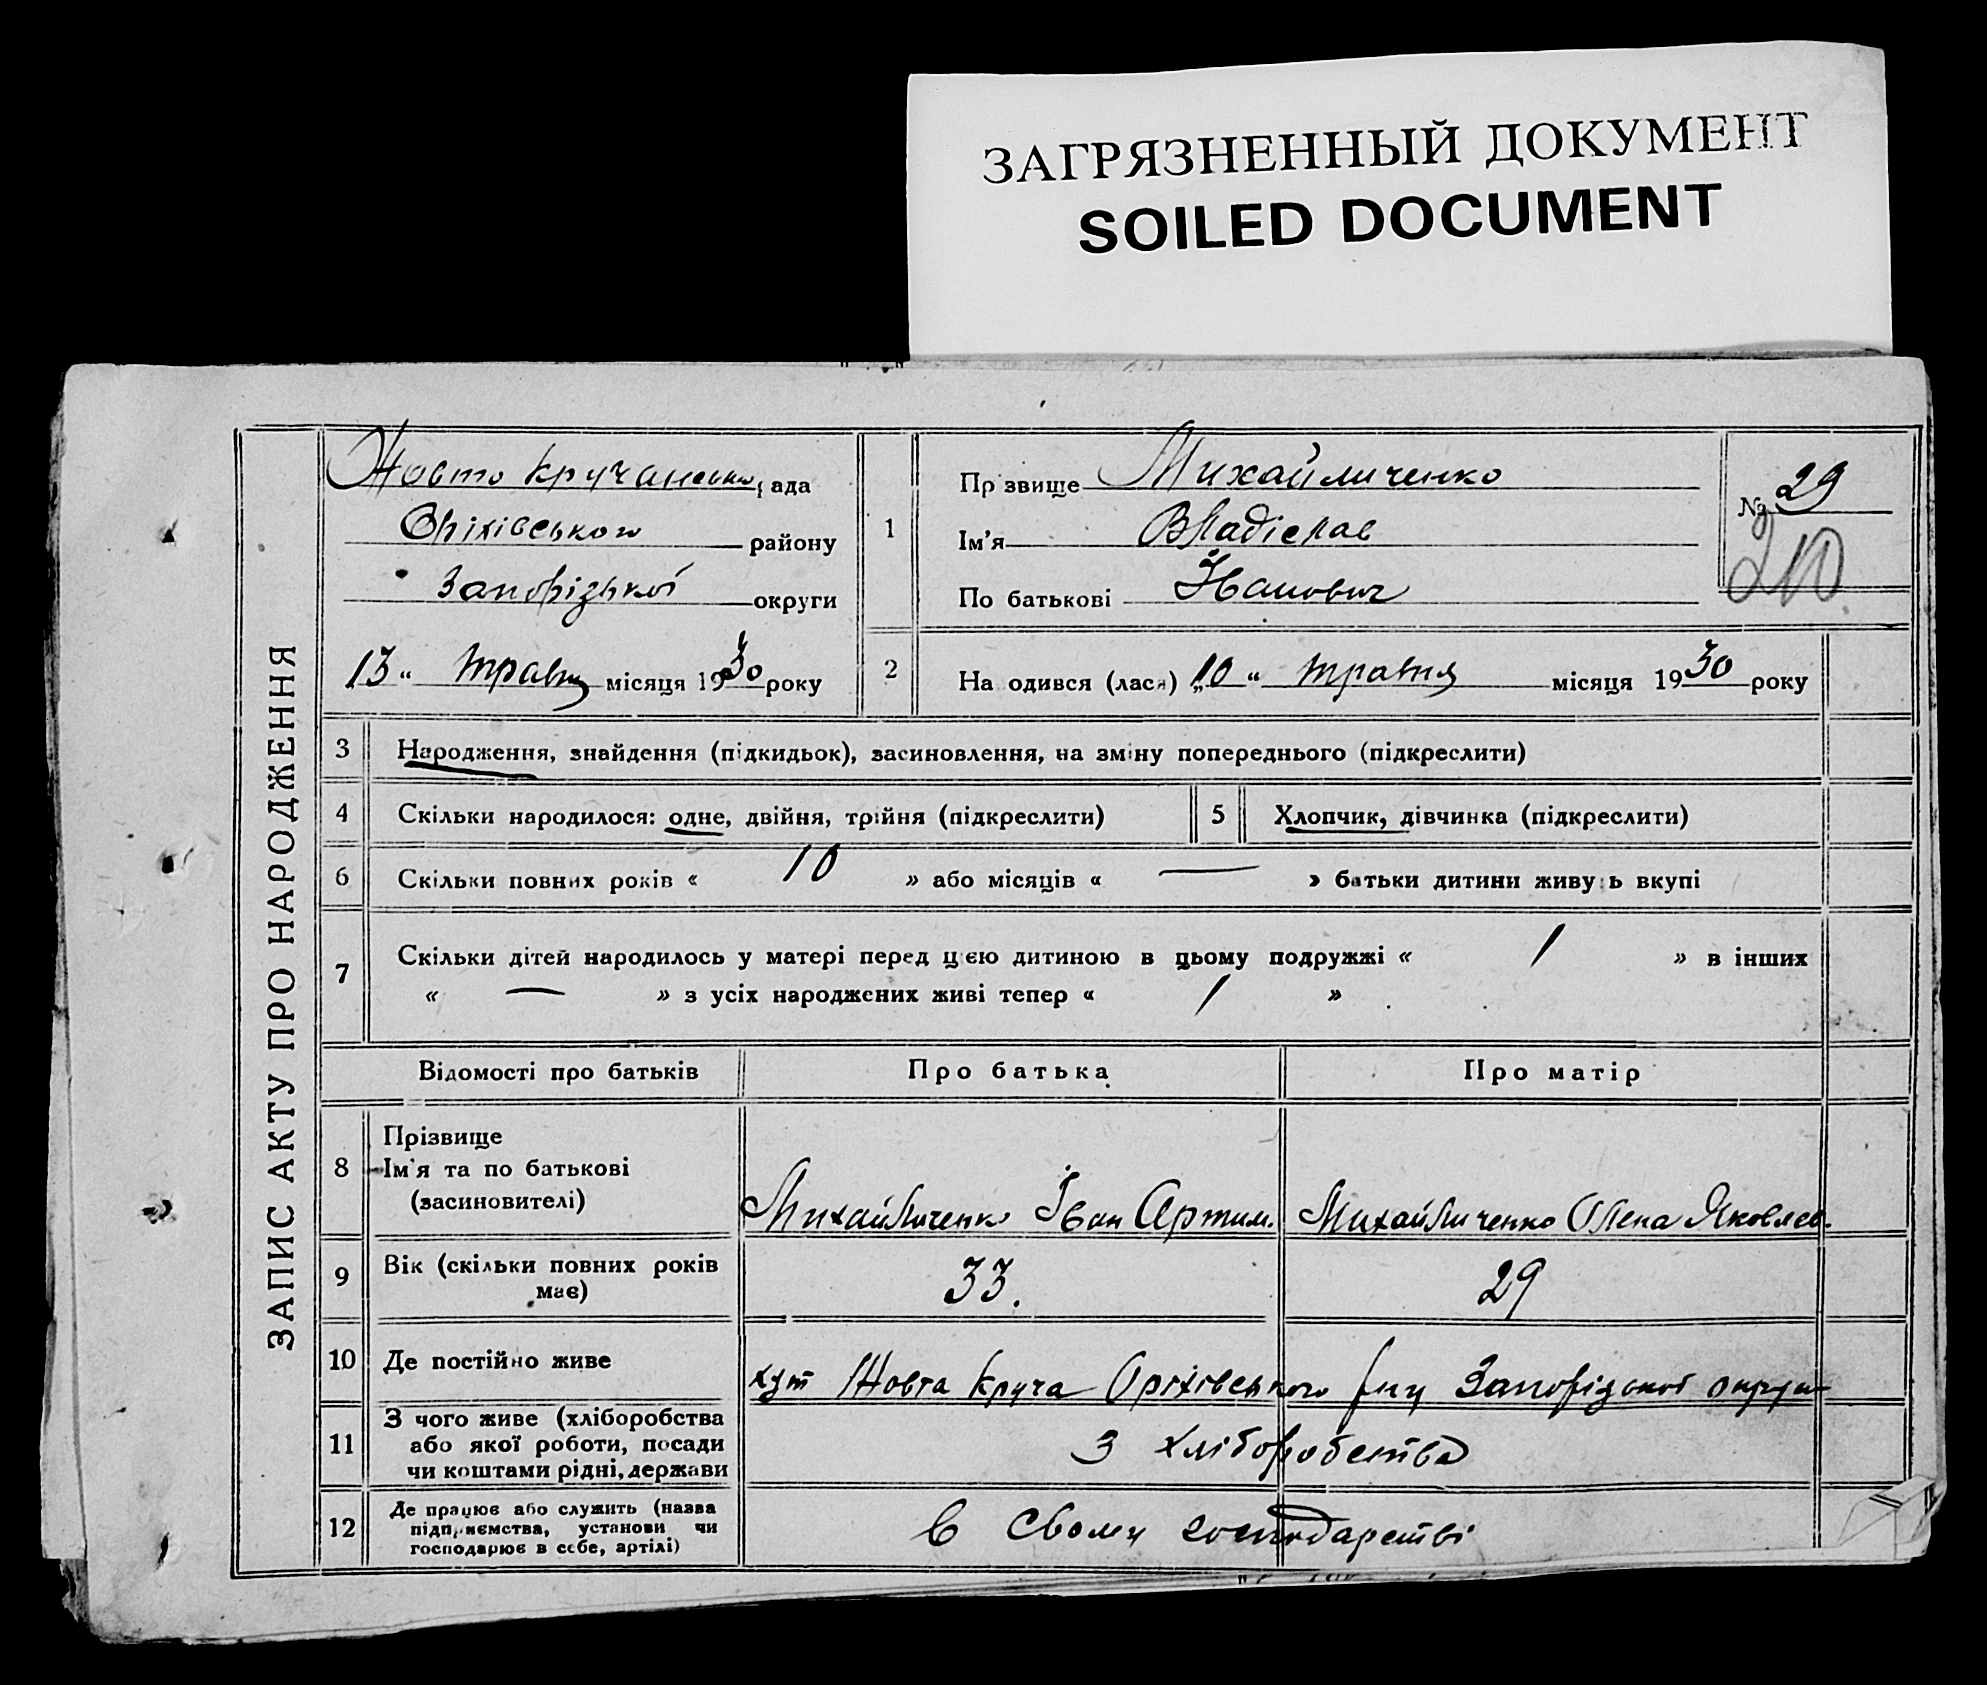 ЗАГРЯЗНЕННЫЙ ДОКУМЕНТ
SOILED DOCUMENT
ЗАПИС АКТУ ПРО НАРОДЖЕННЯ
Жовто Кручанська рада
Оріхівського району
Запорізької округи
13 " травня місяця 1930 року
1
Прізвище Михайличенко
Ім'я Владіслав
По батькові Іванович
№ 29
210
2 На одився (лася) „10 " травня місяця 1930 року
3 Народження, знайдення (підкидьок), засиновлення, на зміну попереднього (підкреслити)
4 Скільки народилося: одне, двійня, трійня (підкреслити) 5 Хлопчик, дівчинка (підкреслити)
6 Скільки повних років « 10 » або місяців « — » батьки дитини живуть вкупі
7 Скільки дітей народилось у матері перед цією дитиною в цьому подружжі « 1 » в інших
« — » з усіх народжених живі тепер « 1 »
Відомості про батьків Про батька Про матір
8 Прізвище
Ім'я та по батькові
(засиновителі)
Михайличенко Іван Артим. Михайличенко Олена Яковлев.
9 Вік (скільки повних років
має)
33. 29
10 Де постійно живе хут Жовта Круча Оріхівського р-ну Запорізької округи
11 З чого живе (хліборобства
або якої роботи, посади
чи коштами рідні, держави
з хліборобства
12 Де працює або служить (назва
підприємства, установи чи
господарює в себе, артілі)
в свому господарстві